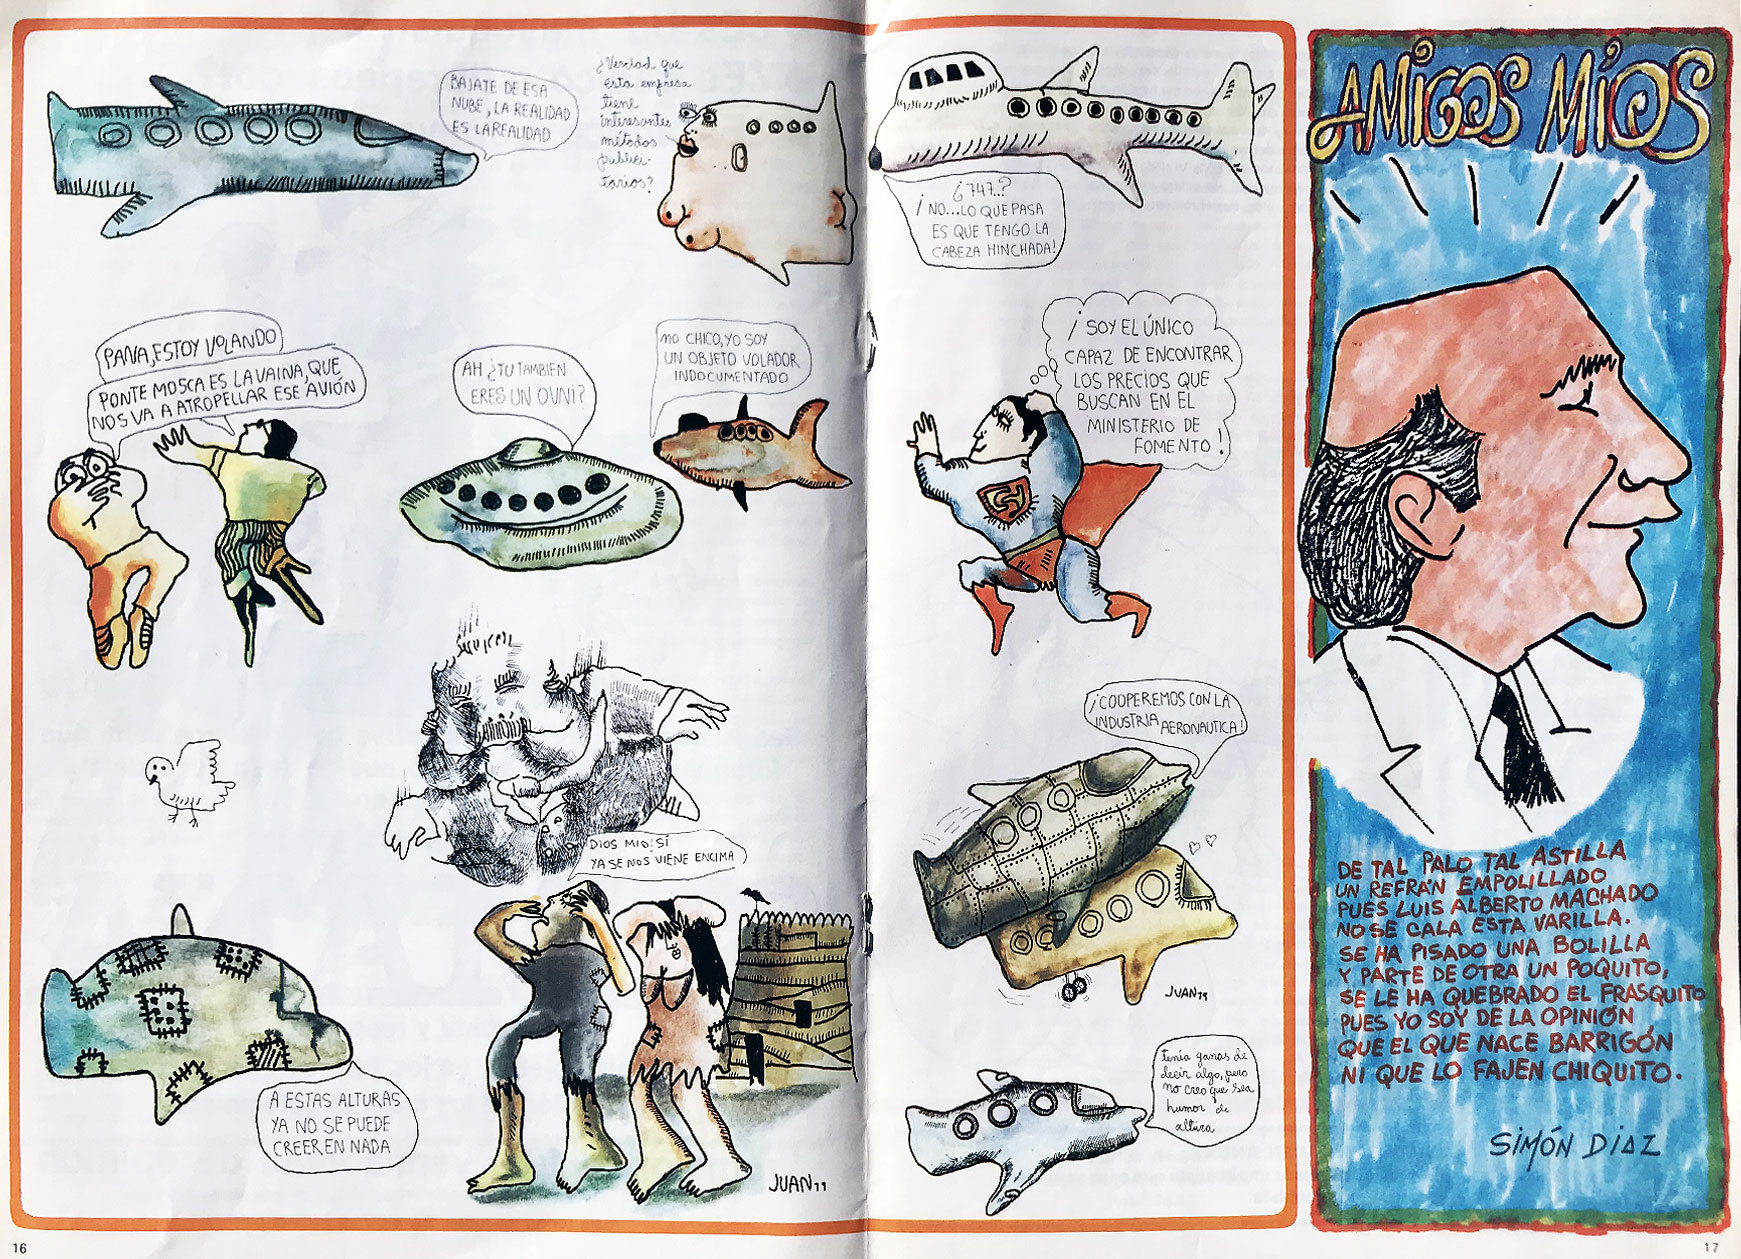 BAJATE DE ESA
NUBE, LA REALIDAD
ES LA REALIDAD
¿Verdad que
esta empresa
tiene
interesantes
métodos
publici-
tarios?
¿747..?
¡NO...LO QUE PASA
ES QUE TENGO LA
CABEZA HINCHADA!
PANA, ESTOY VOLANDO
PONTE MOSCA ES LA VAINA, QUE
NOS VA A ATROPELLAR ESE AVIÓN
AH ¿TU TAMBIEN
ERES UN OVNI?
NO CHICO, YO SOY
UN OBJETO VOLADOR
INDOCUMENTADO
¡SOY EL ÚNICO
CAPAZ DE ENCONTRAR
LOS PRECIOS QUE
BUSCAN EN EL
MINISTERIO DE
FOMENTO!
S
DIOS MIO! SÍ
YA SE NOS VIENE ENCIMA
¡COOPEREMOS CON LA
INDUSTRIA AERONAUTICA!
JUAN 79
A ESTAS ALTURAS
YA NO SE PUEDE
CREER EN NADA
JUAN 79
tenía ganas de
decir algo, pero
no creo que sea
humor de
altura
16
AMIGOS MÍOS
DE TAL PALO TAL ASTILLA
UN REFRÁN EMPOLILLADO
PUES LUIS ALBERTO MACHADO
NO SE CALA ESTA VARILLA.
SE HA PISADO UNA BOLILLA
Y PARTE DE OTRA UN POQUITO,
SE LE HA QUEBRADO EL FRASQUITO
PUES YO SOY DE LA OPINIÓN
QUE EL QUE NACE BARRIGÓN
NI QUE LO FAJEN CHIQUITO.
SIMÓN DIAZ
17